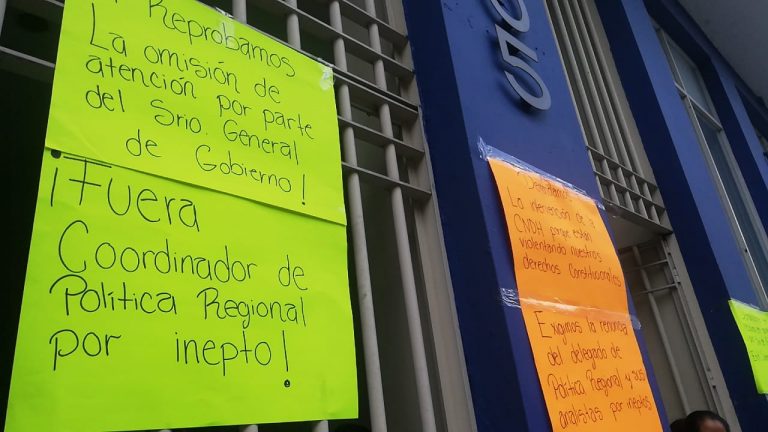 ¡ Reprobamos
La omisión de
atención por parte
del Srio. General
de Gobierno!
¡Fuera
Coordinador de
Política Regional
por inepto!
La intervención de la
CNDH porque están
violentando nuestros
derechos Constitucionales
Exigimos la renuncia
del delegado de
Política Regional y sus
analistas por ineptos